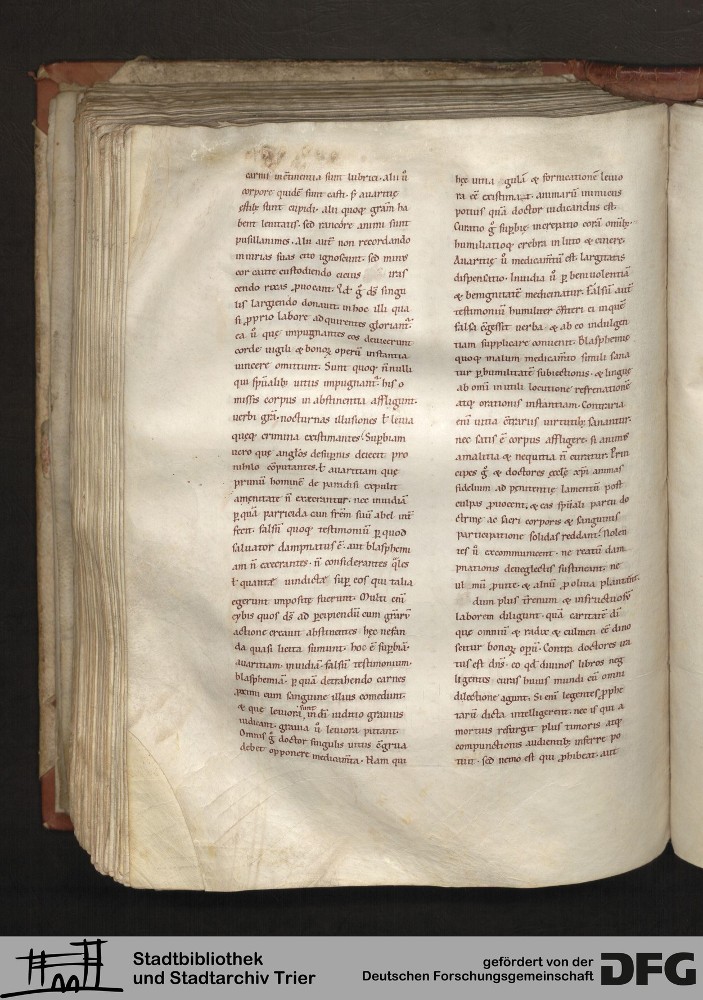 carnis incontinentia sunt lubrici. alii ũ
corpore quidē sunt casti. sꝫ auaritię
ęstib; sunt cupidi. alii quoq; grām ha
bent lenitatis. sed rancore animi sunt
pusillanimes. alii aūt non recordando
iniurias suas cito ignoscunt. sed minus
cor caute custodiendo cicius iras
cendo rixas ꝓuocant. Id g̊ dš singu
lis largiendo donauit. in hoc illi qua
si ꝓprio labore adquirentes gloriant̃.
ea ũ quę impugnantes eos deiecerunt
corde uigili & bonoꝝ operū instantia
uincere omittunt. Sunt quoq; nͫnulli
qui spūalib; uitiis impugnant̃. his o
missis corpus in abstinentia affligunt.
uerbi grā. nocturnas illusiones ł leuia
quęq; crimina existimantes. Supbiam
uero quę anglōs desupnis deiecit pro
nihilo cōputantes. ł auaritiam quę
primū hominē de paradisi expulit
amęnitate ñ execrantur. nec inuidiā
p quā parricida cain frēm suū abel int̃
fecit. falsū quoq; testimoniū p quod
saluator dampnatus ē. aut blasphemi
am ñ execrantes. ñ considerantes q̃les
ł quantæ uindictæ sup eos qui talia
egerunt impositę fuerunt. Multi enī
cybis quos dš ad pcipiendū cum grāꝝ
actione creauit abstinentes hęc nefan
da quasi licita sumunt. hoc ē supbiā.
auaritiam. inuidiā. falsū testimonium.
blasphemiā. p quā detrahendo carnes
ꝓximi cum sanguine illius comedunt.
& quę leuiora sunt in dī iuditio grauius
iudicant. grauia ũ leuiora putant.
Omnis g̊ doctor singulis uitiis cōgrua
debet opponere medicam̄ta. Nam qui
hęc uitia gulā & fornicationē leuio
ra eē existimat. animarū inimicus
potius quā doctor iudicandus est.
Curatio g̊ supbię increpatio corā omīb;
humiliatioq; crebra in luto & cinere.
Auaritię ũ medicam̄tū est. largitatis
dispensatio. Inuidia ũ p beniuolentiā
& benignitatē medicinatur. Falsū aūt
testimoniū humiliter cōfiteri ei in quē
falsa cōgessit uerba & ab eo indulgen
tiam supplicare conuenit. Blasphemię
quoq; malum medicam̄to simili sana
tur p humilitatē subiectionis. & linguę
ab om̄i inutili locutione refrenationē
atq; orationis instantiam. Contraria
enī uitia cōtrariis uirtutib; sanantur.
nec satis ē corpus affligere. si animę
amalitia & nequitia ñ curatur. Prin
cipes g̊ & doctores ęcclę xp̄i animas
fidelium ad penitentię lamentū post
culpas ꝓuocent. & eas spūali partu do
ctrinę ac sacri corporis & sanguinis
participatione solidas reddant. Nolen
tes ũ excommunicent. ne reatū dam
pnationis deneglectis sustineant. ne
ul mū ꝓ uite. & alnū ꝓ oliua plantent.
dum plus īrenum & infructuosū
laborem diligunt. quā caritatē dī
quę omniū & radix & culmen eē dino
scitur bonoꝝ opū. Contra doctores ira
tus est dn̄s. eo qd diuinos libros neg
ligentes curis huius mundi cū omni
dilectione agunt. Si enī legentes ꝓphe
tarū dicta intelligerent. nec is qui a
mortuis resurgit plus timoris atq;
compunctionis audientib; inferre po
tuit. sed nemo est qui ꝓhibeat. aut
Stadtbibliothek
und Stadtarchiv Trier
gefördert von der
Deutschen Forschungsgemeinschaft
DFG